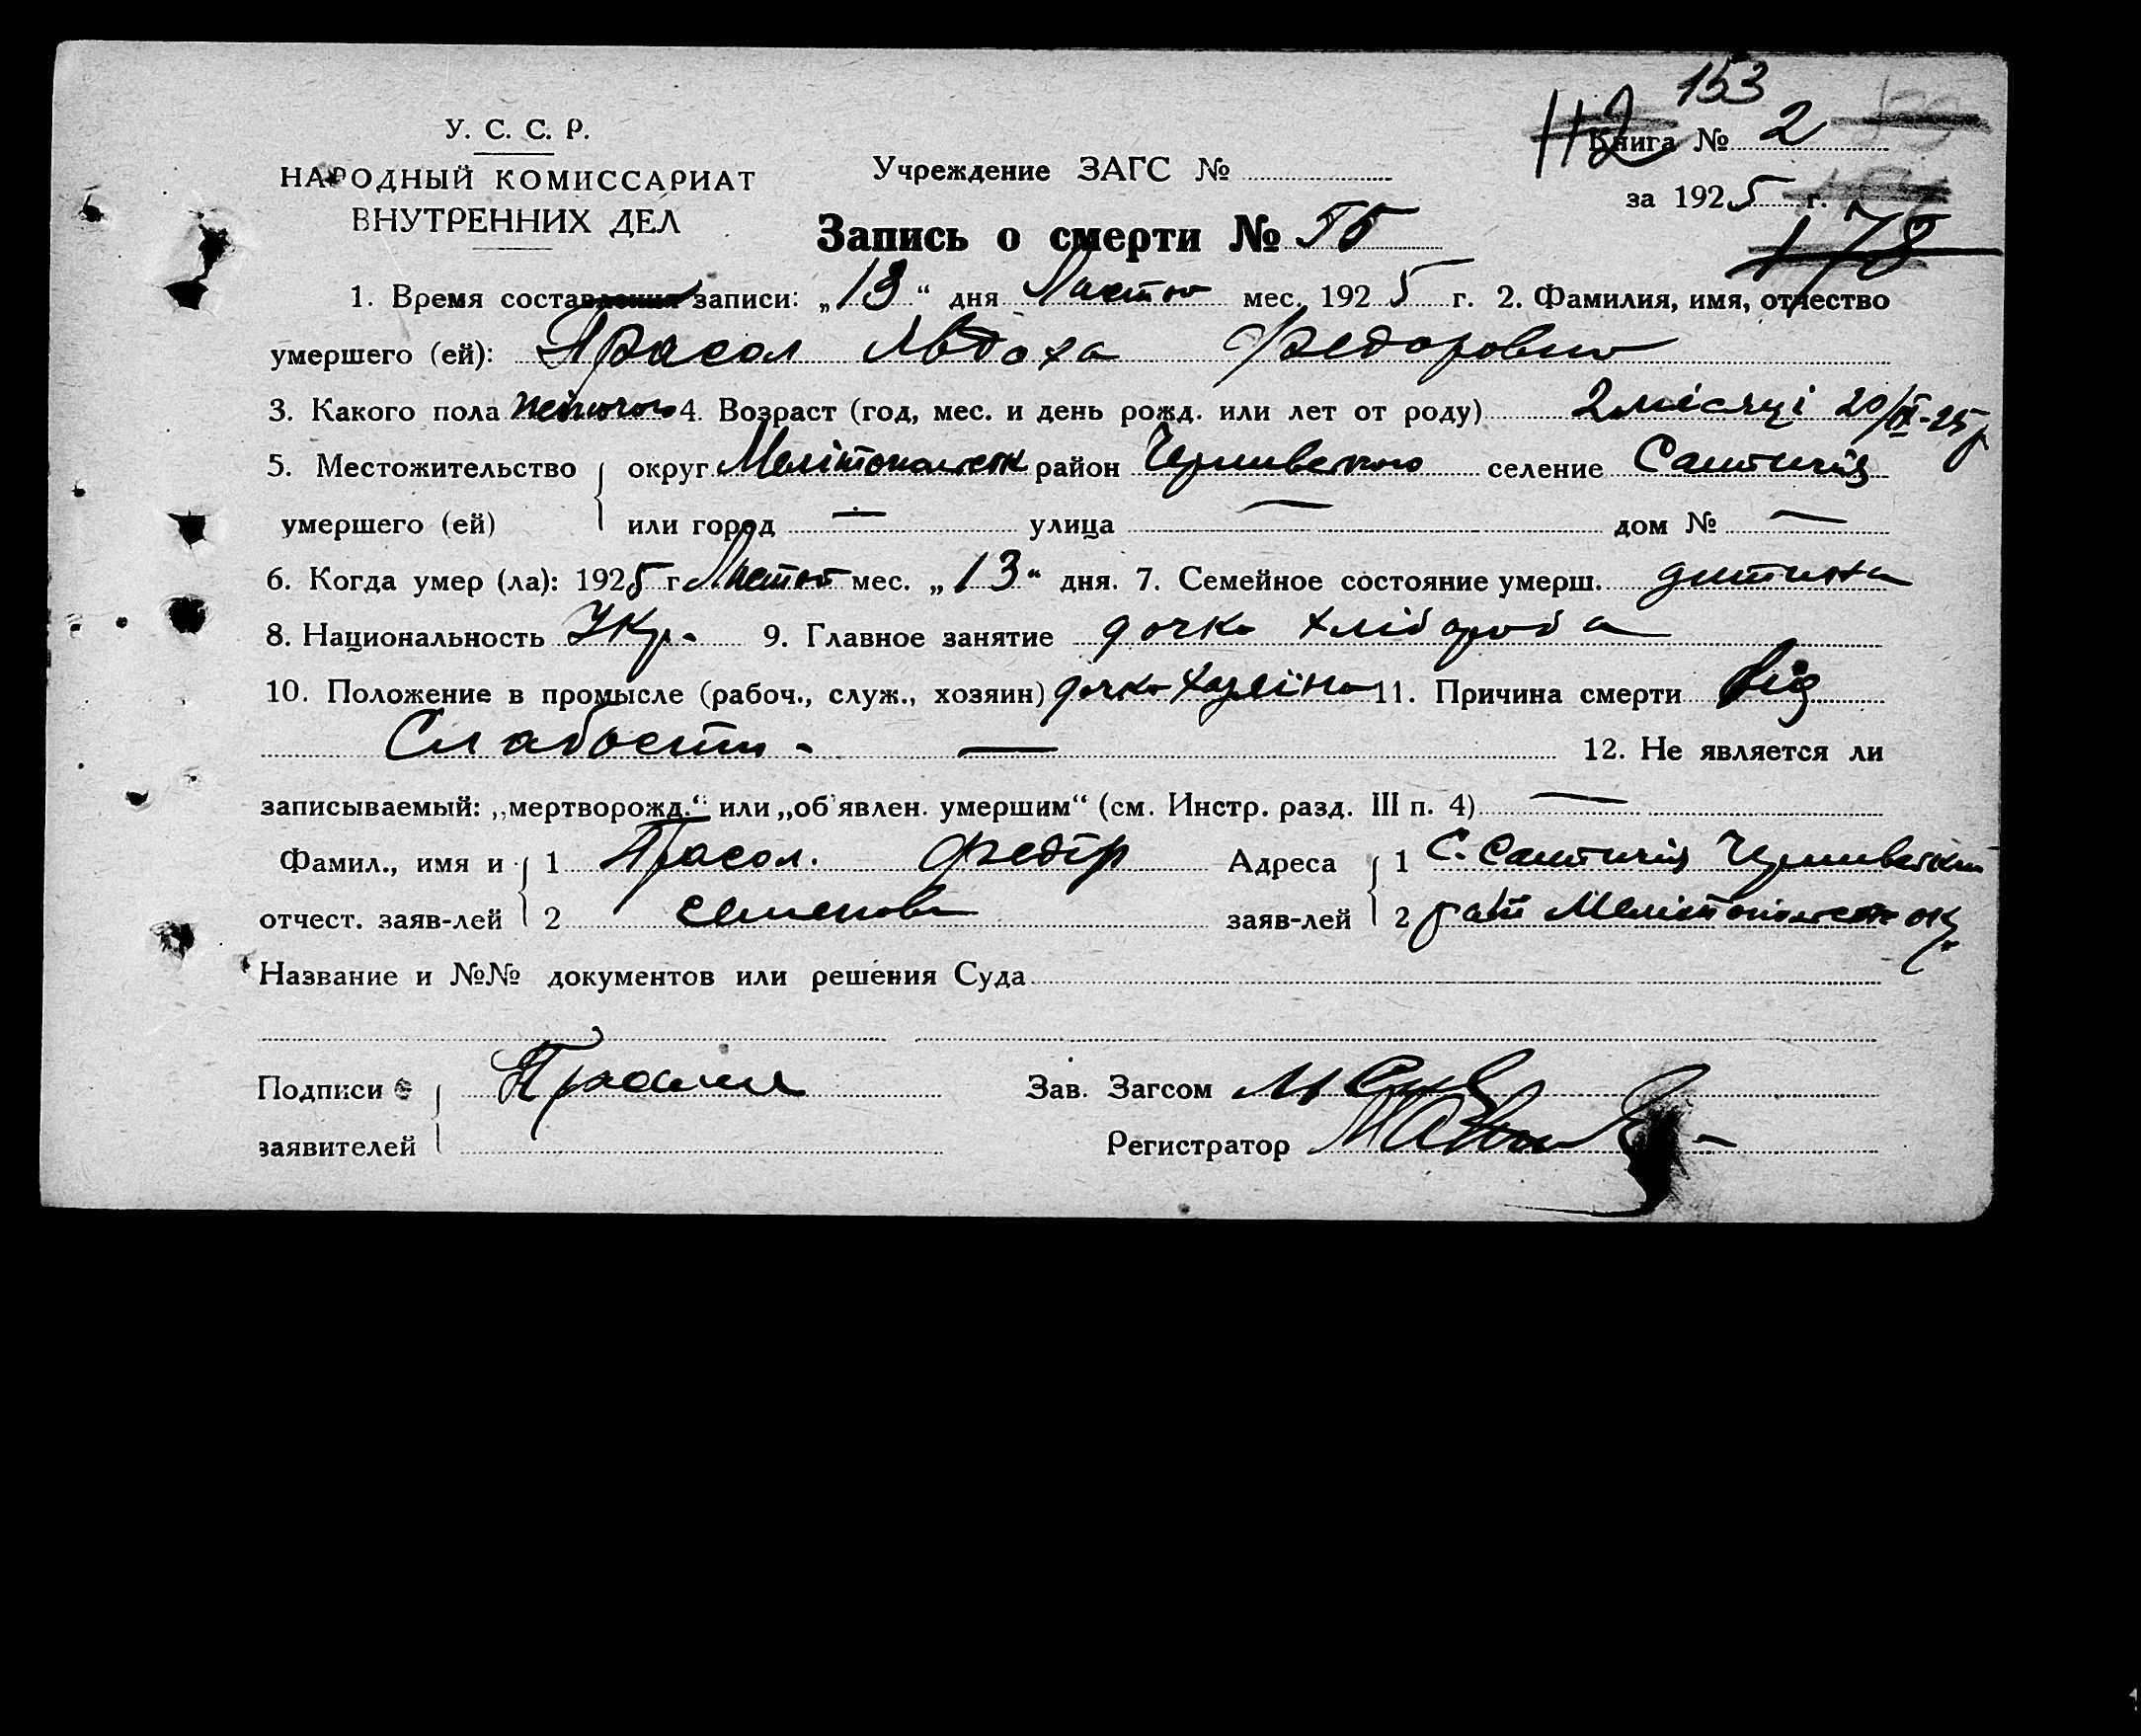 153
У. С. С. Р.
112 Книга № 2
НАРОДНЫЙ КОМИССАРИАТ
ВНУТРЕННИХ ДЕЛ
Учреждение ЗАГС №
за 1925 г.
178
Запись о смерти № 55
1. Время составления записи: „13“ дня мес. 1925 г. 2. Фамилия, имя, отчество
умершего (ей): Прасол Явдоха Федоровна
3. Какого пола жіночого 4. Возраст (год, мес. и день рожд. или лет от роду) 2 місяці 20/IX-25 р
5. Местожительство округ Мелітопольськ район селение
умершего (ей) или город — улица — дом № —
6. Когда умер (ла): 1925 г мес. „13“ дня. 7. Семейное состояние умерш. дитина
8. Национальность Укр. 9. Главное занятие дочка хлібороба
10. Положение в промысле (рабоч., служ., хозяин) дочка хазяіна 11. Причина смерти від
Слабости - — 12. Не является ли
записываемый: „мертворожд.“ или „об'явлен. умершим“ (см. Инстр. разд. III п. 4) —
Фамил., имя и 1 Прасол. Федір Адреса 1 С.
отчест. заяв-лей 2 Семенов заяв-лей 2 Мелітопольськ ок
Название и №№ документов или решения Суда
Подписи Прасол Зав. Загсом
заявителей Регистратор